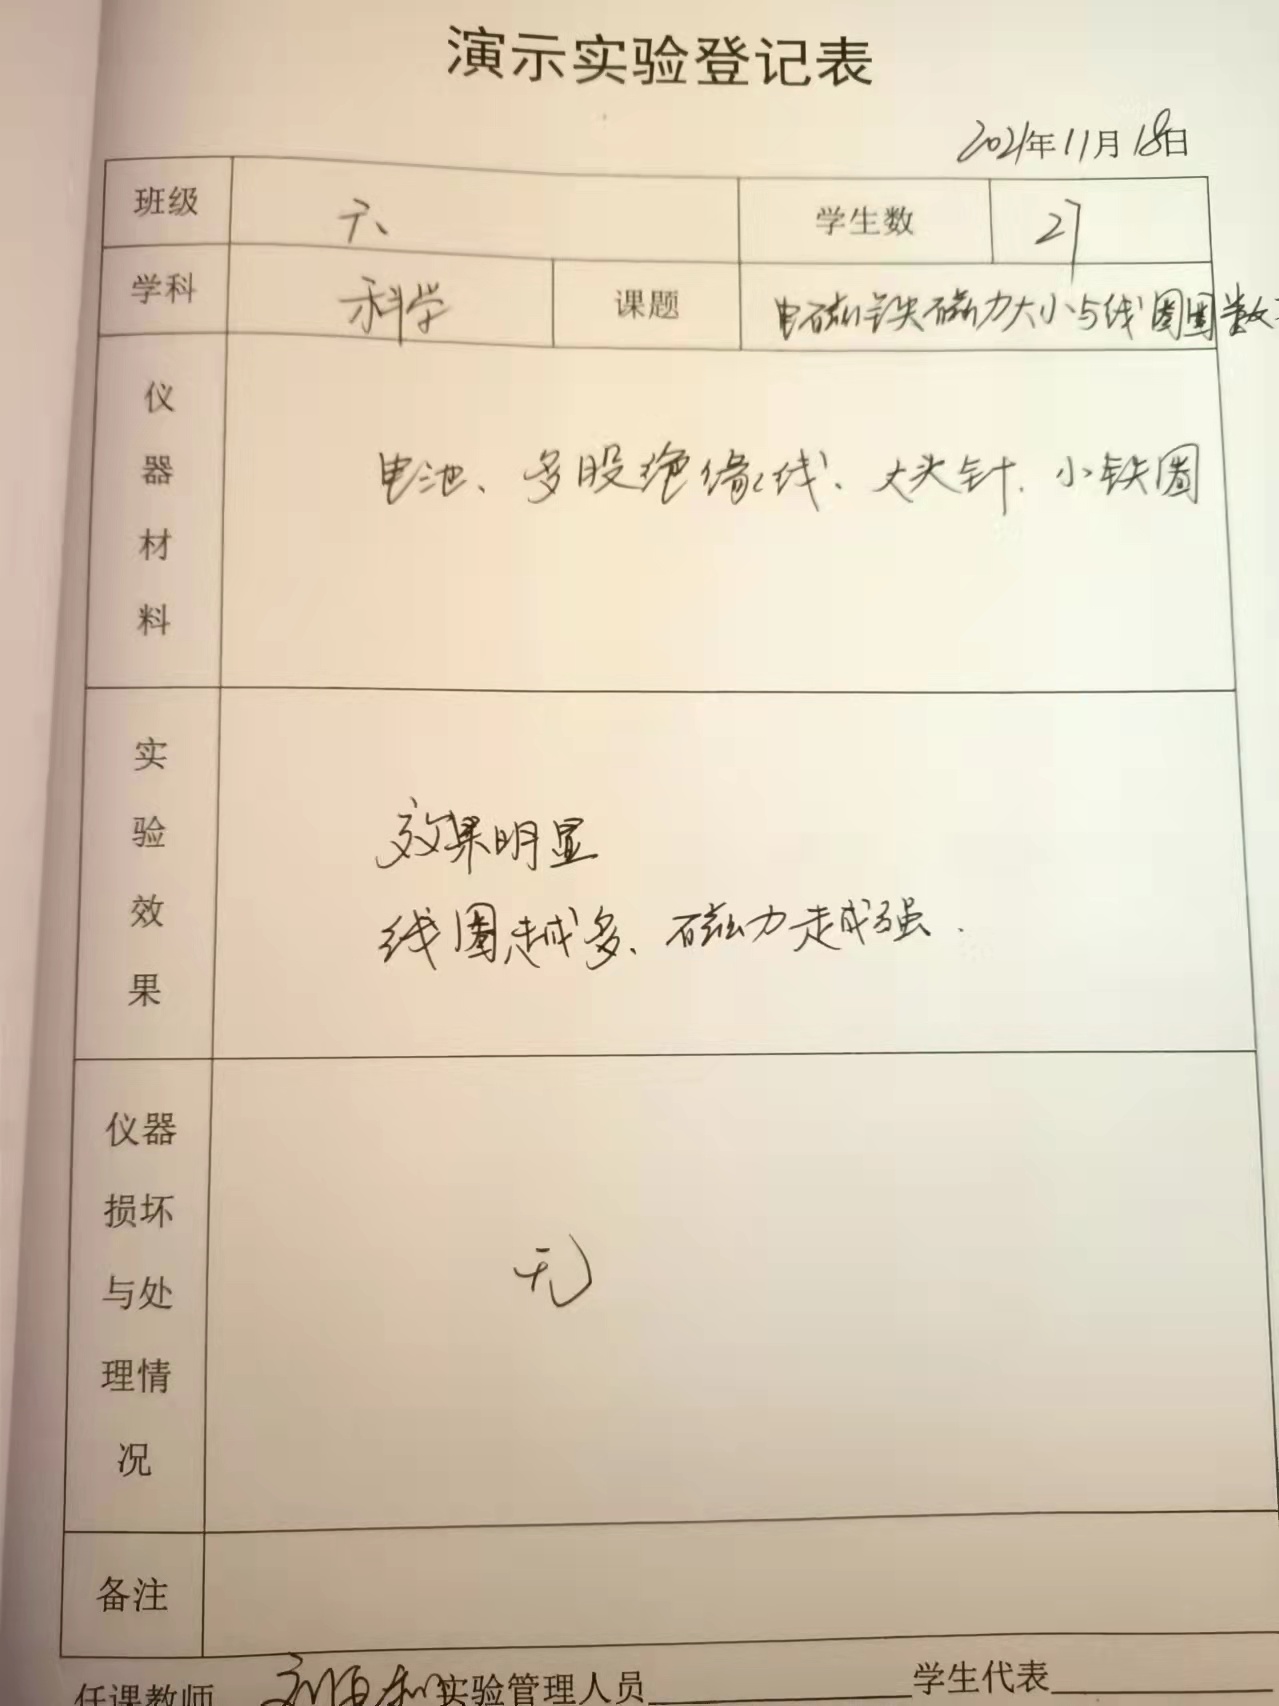 演示实验登记表
2021年11月18日
班级 六 学生数 27
学科 科学 课题 电磁铁磁力大小与线圈圈数
仪器材料 电池、多股绝缘线、大头针、小铁圈
实验效果 效果明显
线圈越多、磁力越强.
仪器损坏与处理情况 无
备注
任课教师 实验管理人员 学生代表